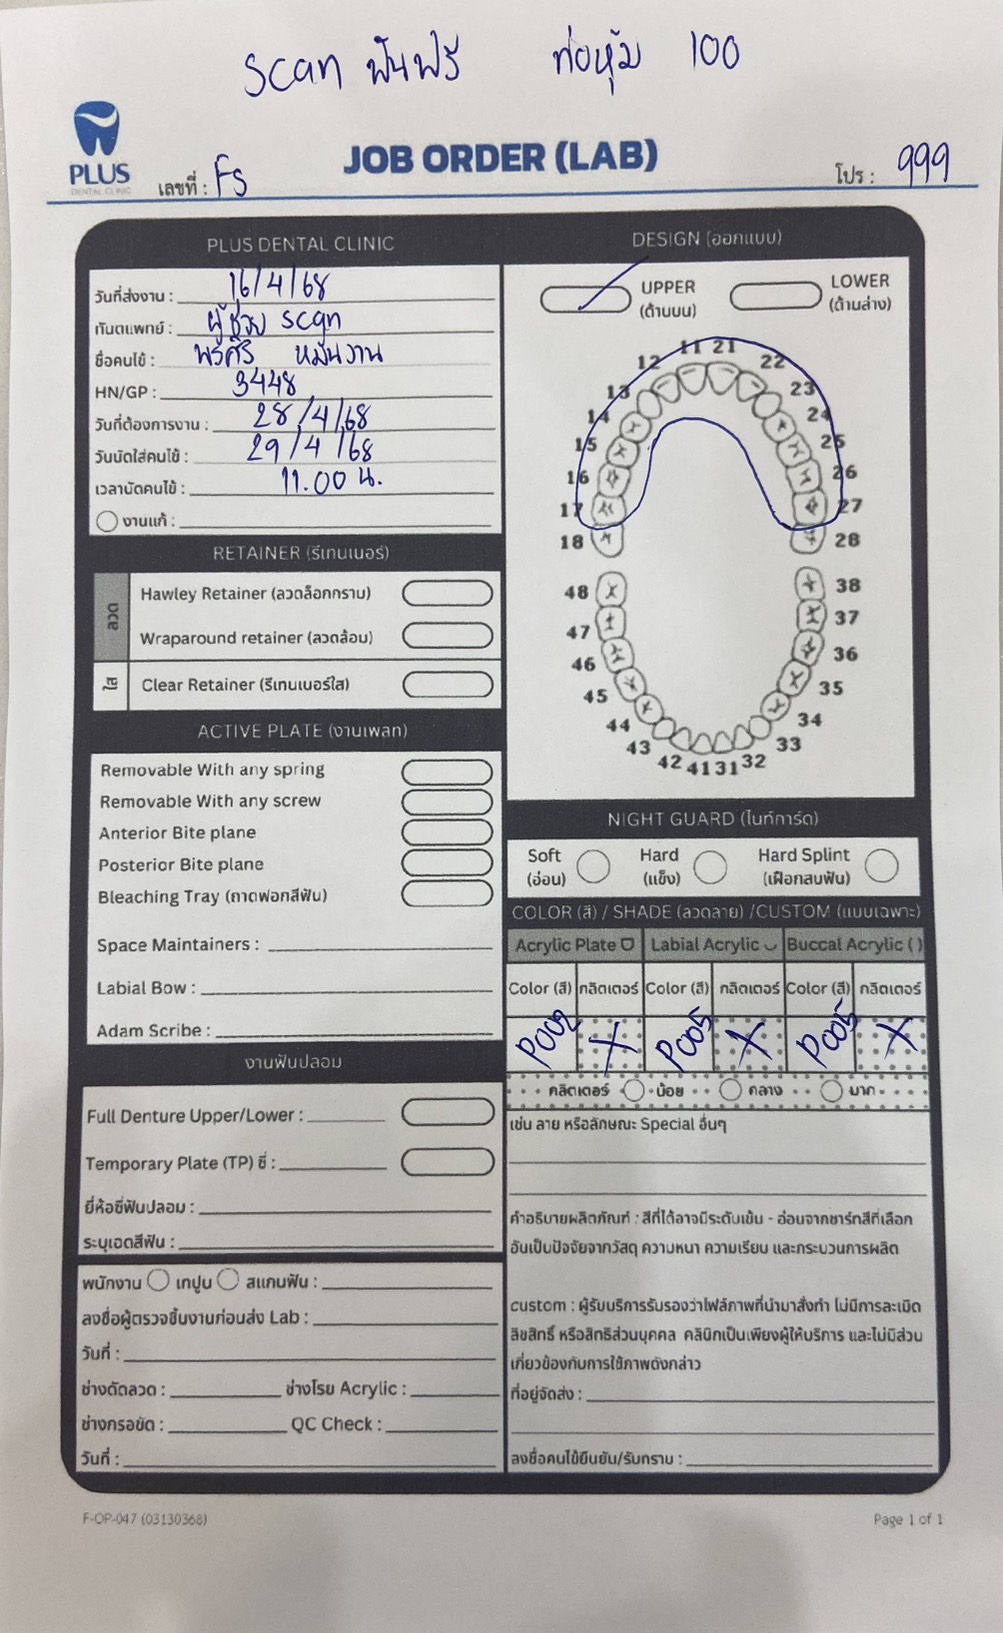 scan ฟันฟรี ท่อหุ้ม 100
PLUS
DENTAL CLINIC
เลขที่ : FS
JOB ORDER (LAB)
โปร : 999
PLUS DENTAL CLINIC
วันที่ส่งงาน : 16/4/68
ทันตแพทย์ : ผู้ช่วย scan
ชื่อคนไข้ : พรศิริ หมั่นงาน
HN/GP : 3448
วันที่ต้องการงาน : 28/4/68
วันนัดใส่คนไข้ : 29/4/68
เวลานัดคนไข้ : 11.00 น.
งานแก้ :
RETAINER (รีเทนเนอร์)
ลวด
Hawley Retainer (ลวดล็อกกราม)
Wraparound retainer (ลวดล้อม)
ใส
Clear Retainer (รีเทนเนอร์ใส)
ACTIVE PLATE (งานเพลท)
Removable With any spring
Removable With any screw
Anterior Bite plane
Posterior Bite plane
Bleaching Tray (ถาดฟอกสีฟัน)
Space Maintainers :
Labial Bow :
Adam Scribe :
งานฟันปลอม
Full Denture Upper/Lower :
Temporary Plate (TP) ซี่ :
ยี่ห้อซี่ฟันปลอม :
ระบุเฉดสีฟัน :
พนักงาน เทปูน สแกนฟัน :
ลงชื่อผู้ตรวจชิ้นงานก่อนส่ง Lab :
วันที่ :
ช่างดัดลวด : ช่างโรย Acrylic :
ช่างกรอขัด : QC Check :
วันที่ :
DESIGN (ออกแบบ)
UPPER
(ด้านบน)
LOWER
(ด้านล่าง)
11 21
12 22
13 23
14 24
15 25
16 26
17 27
18 28
48 38
47 37
46 36
45 35
44 34
43 33
42 41 31 32
NIGHT GUARD (ไนท์การ์ด)
Soft
(อ่อน)
Hard
(แข็ง)
Hard Splint
(เฝือกสบฟัน)
COLOR (สี) / SHADE (ลวดลาย) /CUSTOM (แบบเฉพาะ)
Acrylic Plate Labial Acrylic Buccal Acrylic ( )
Color (สี) กลิตเตอร์ Color (สี) กลิตเตอร์ Color (สี) กลิตเตอร์
P002 X P005 X P005 X
กลิตเตอร์ น้อย กลาง มาก
เช่น ลาย หรือลักษณะ Special อื่นๆ
คำอธิบายผลิตภัณฑ์ : สีที่ได้อาจมีระดับเข้ม - อ่อนจากชาร์ทสีที่เลือก
อันเป็นปัจจัยจากวัสดุ ความหนา ความเรียบ และกระบวนการผลิต
custom : ผู้รับบริการรับรองว่าไฟล์ภาพที่นำมาสั่งทำ ไม่มีการละเมิด
ลิขสิทธิ์ หรือสิทธิส่วนบุคคล คลินิกเป็นเพียงผู้ให้บริการ และไม่มีส่วน
เกี่ยวข้องกับการใช้ภาพดังกล่าว
ที่อยู่จัดส่ง :
ลงชื่อคนไข้ยืนยัน/รับทราบ :
F-OP-047 (03130368)
Page 1 of 1